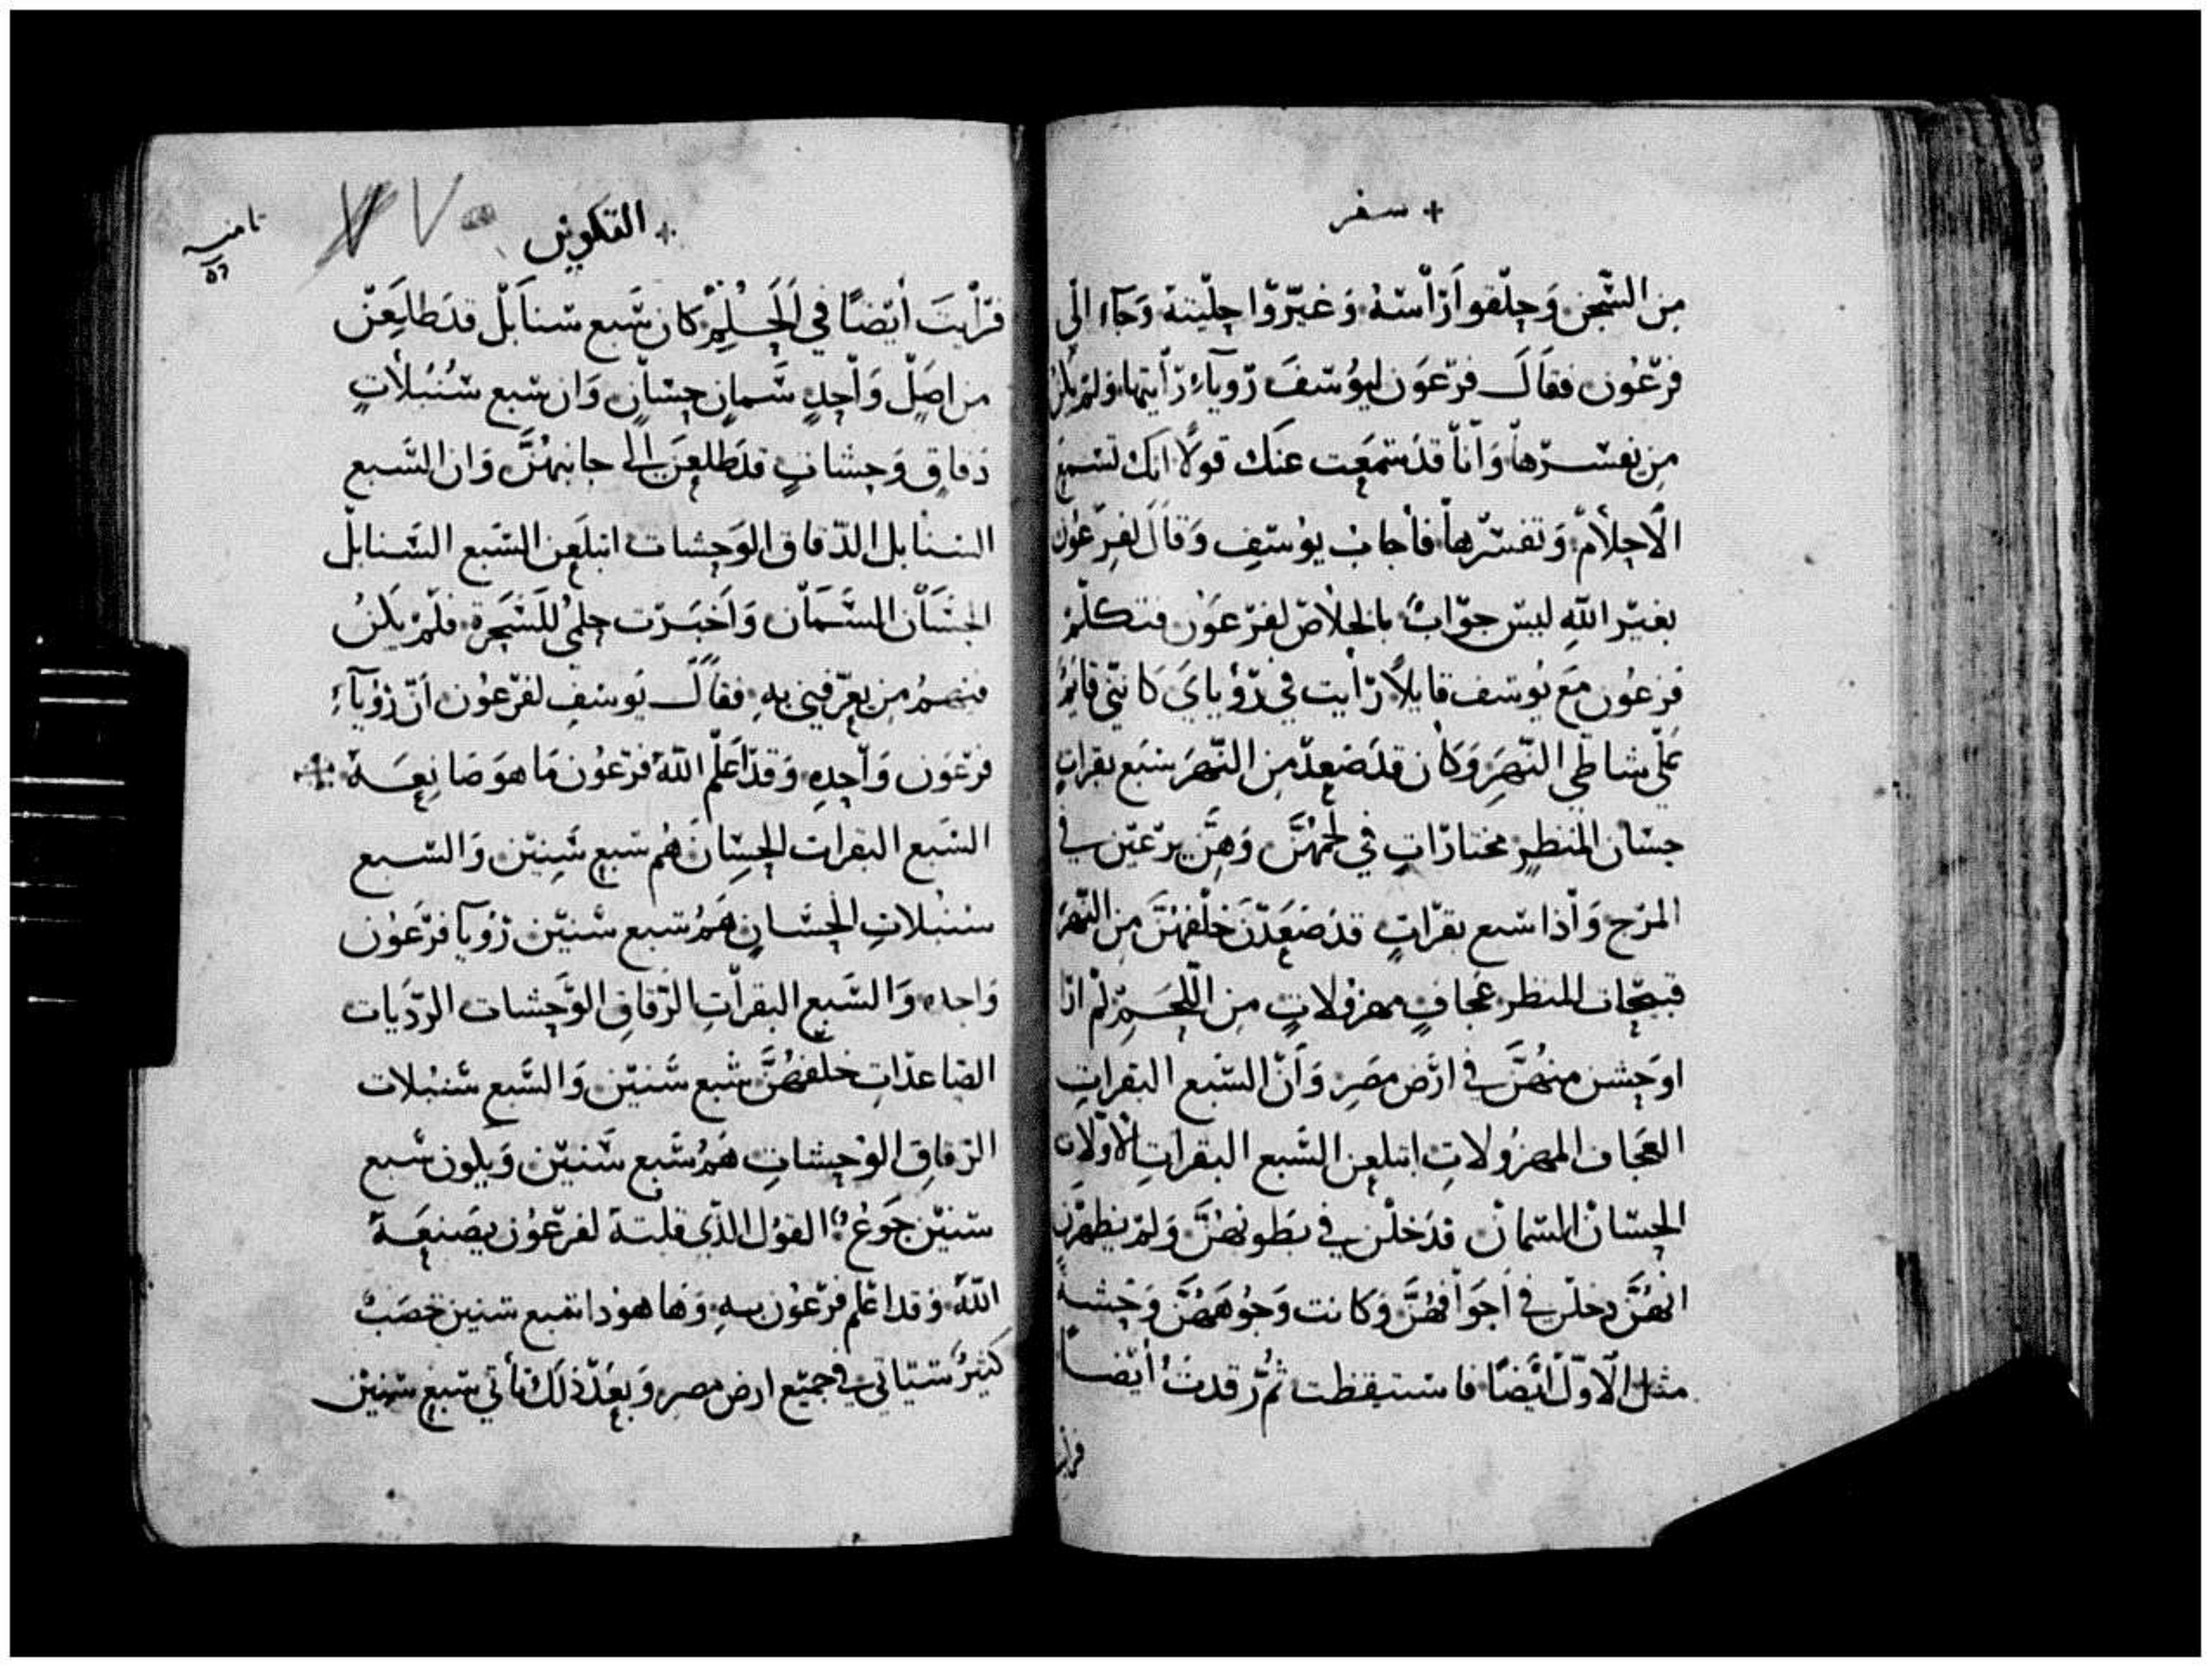 + سفر
من السجن وحلقوا رأسه وغيروا حليته وجاء الى
فرعون فقال فرعون ليوسف رويآء رأيتها ولم يكن
من يفسرها وأنا قد سمعت عنك قولا انك تسمع
الاحلام وتفسرها فأجاب يوسف وقال لفرعون
بغير الله ليس جواب بالخلاص لفرعون فتكلم
فرعون مع يوسف قايلا رأيت في رؤياي كانني قايم
على شاطي النهر وكان قد صعد من النهر سبع بقرات
حسان المنظر مختارات في لحمهن وهن يرعين في
المرج واذا سبع بقرات قد صعدن خلفهن من النهر
قبيحات المنظر عجاف مهزولات من اللحم لم ارا
اوحش منهن في ارض مصر وأن السبع البقرات
العجاف المهزولات ابتلعن السبع البقرات الاولات
الحسان السمان قد خلن في بطونهن ولم يظهرن
انهن دخلن في اجوافهن وكانت وجوههن وحشة
مثل الاول ايضا فاستيقظت ثم رقدت أيضا
فرأيت
+ التكوين
ثامنه
٥٦
٧٧
فرأيت أيضا في الحلم كان سبع سنابل قد طلعن
من اصل واحد سمان حسان وان سبع سنبلات
دقاق وحشات قد طلعن الى جانبهن وان السبع
السنابل الدقاق الوحشات ابتلعن السبع السنابل
الحسان السمان وأخبرت حلمي للسحرة فلم يكن
فيهم من يعرفني به فقال يوسف لفرعون أن رؤيآء
فرعون واحده وقد أعلم الله فرعون ما هو صانعه
السبع البقرات الحسان هم سبع سنين والسبع
سنبلات الحسان هم سبع سنين رؤيا فرعون
واحده والسبع البقرات الرقاق الوحشات الرديات
الصاعدات خلفهن سبع سنين والسبع سنبلات
الرقاق الوحشات هم سبع سنين ويلون سبع
سنين جوع القول الذي قلته لفرعون يصنعه
الله وقد اعلم فرعون به وها هوذا سبع سنين خصب
كثير ستياتي في جميع ارض مصر وبعد ذلك تأتي سبع سنين